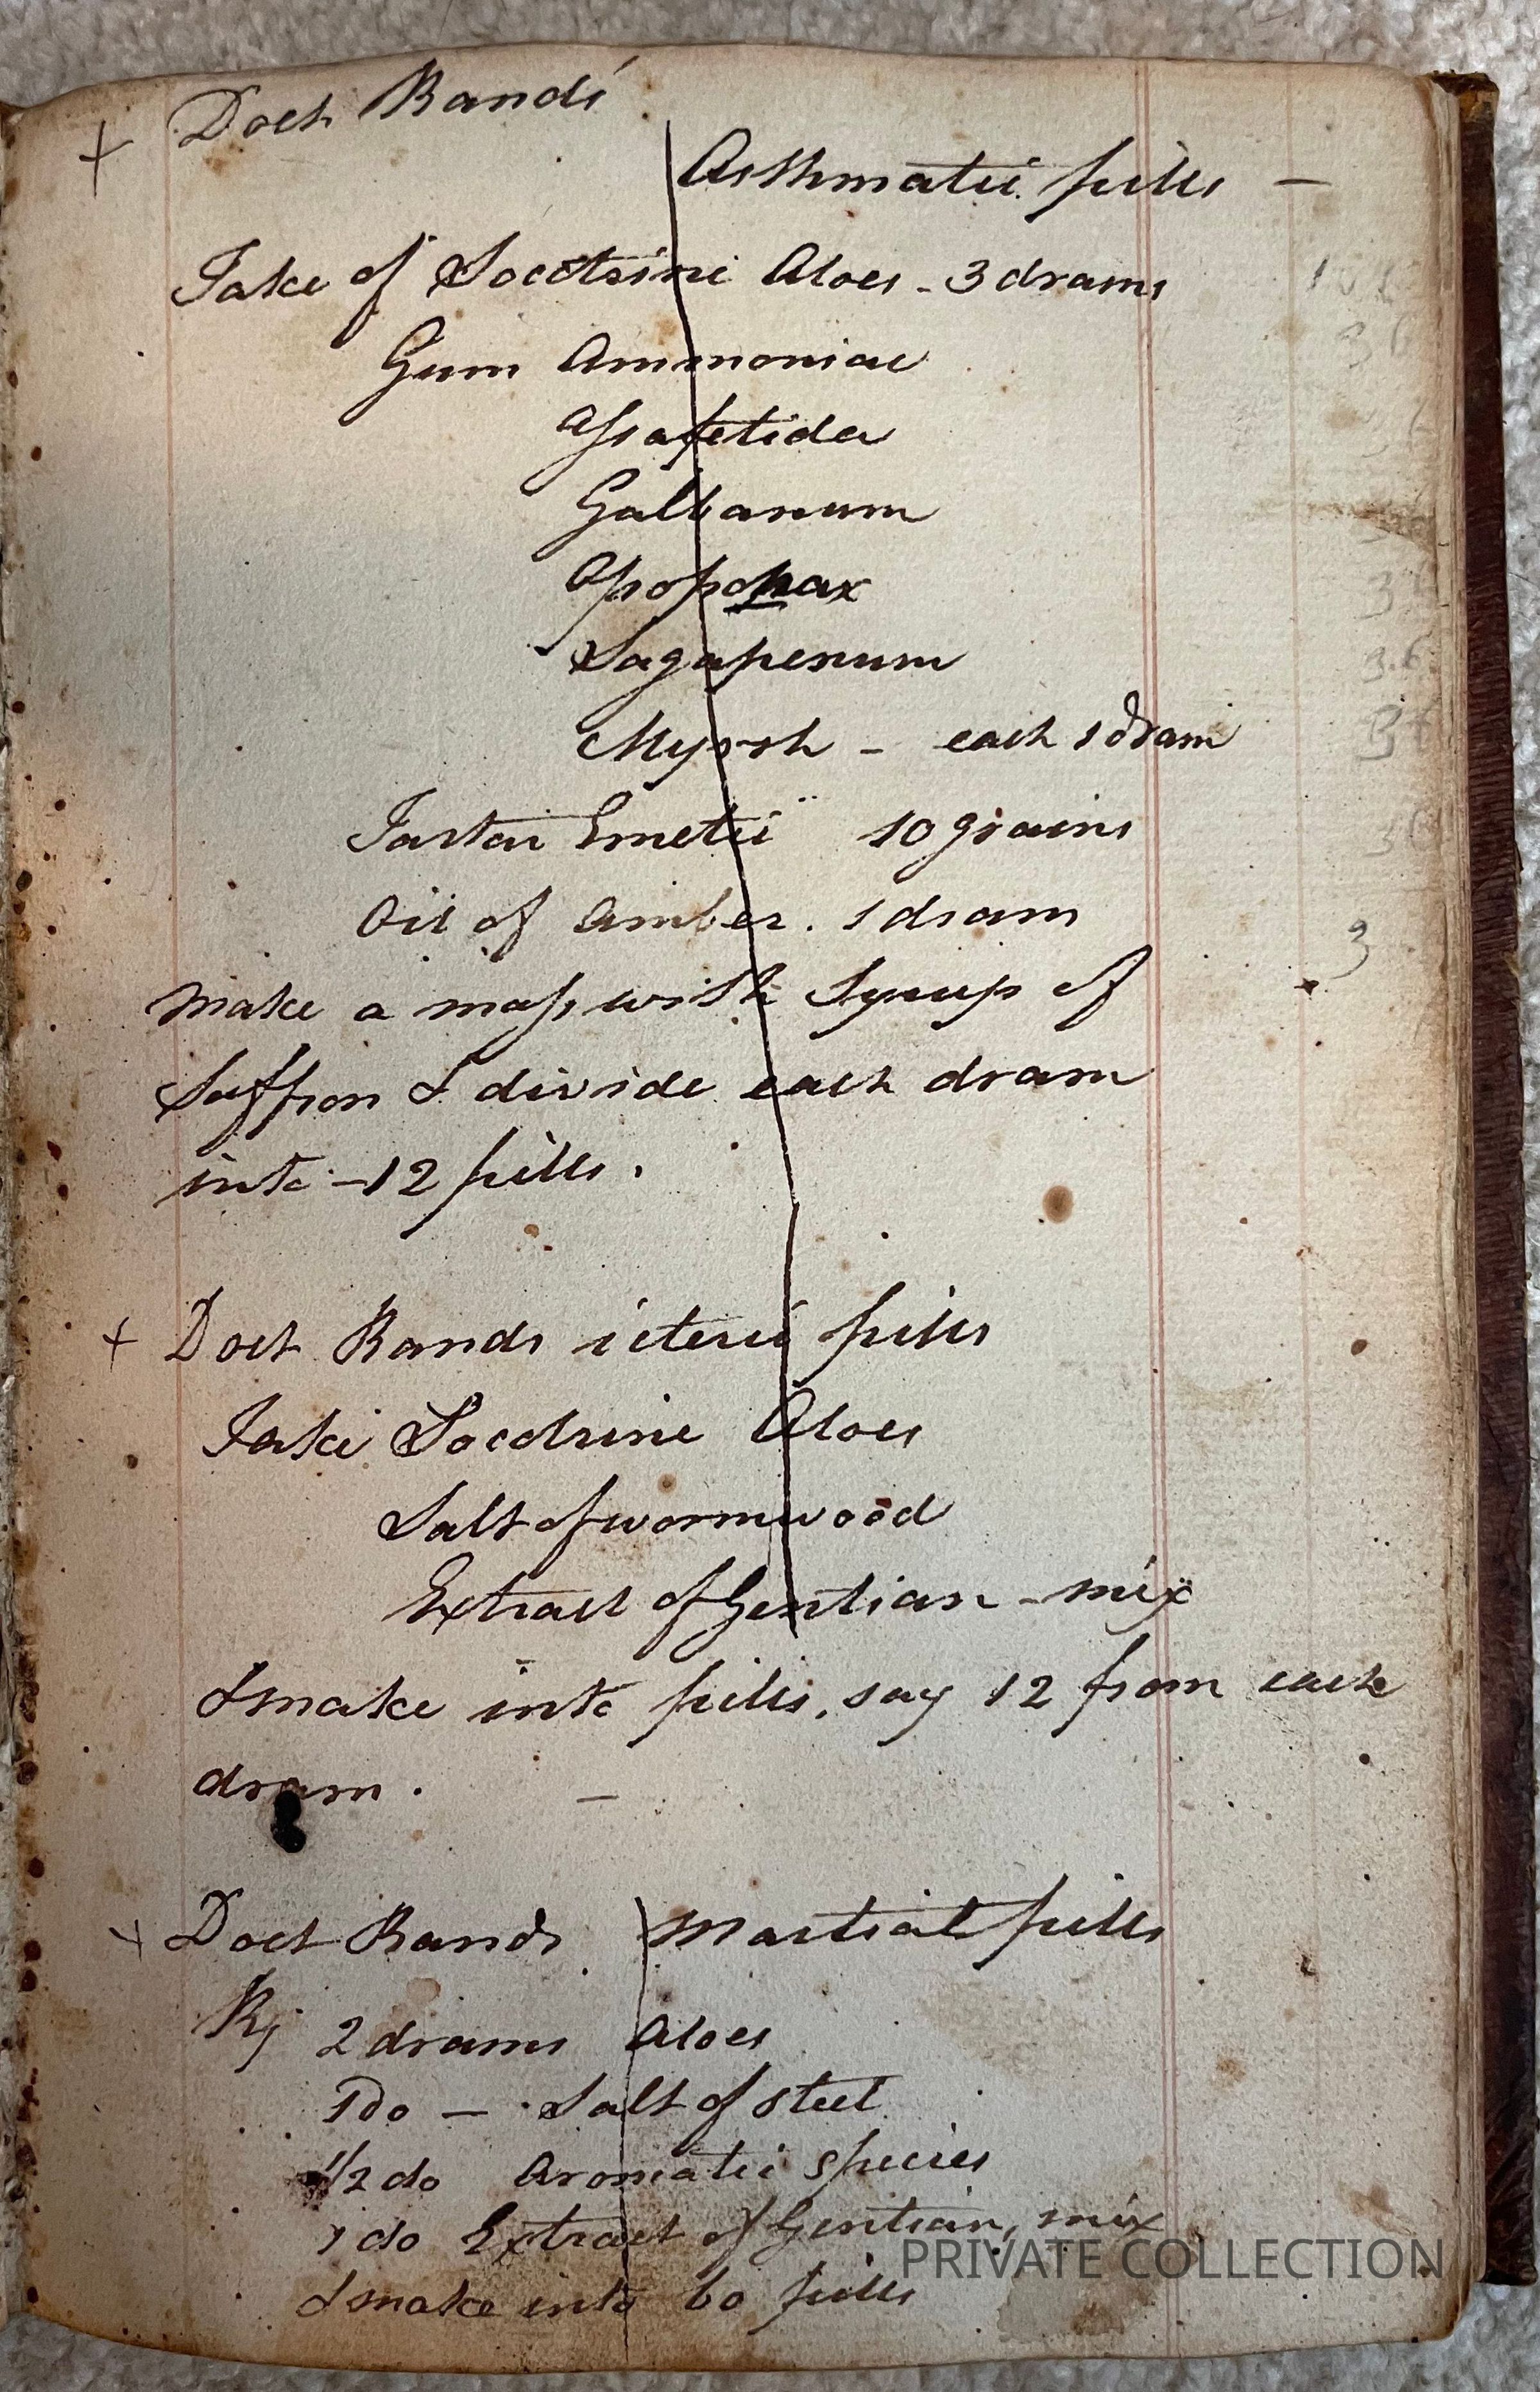 + Doct Rands
Asthmatic pills —
Take of Socotrine Aloes - 3 drams
Gum Ammoniac
Assafetida
Galbanum
Opoponax
Sagapenum
Myrrh - each 1 dram
Tartar Emetic 10 grains
Oil of Amber. 1 dram
3
make a mass with Syrup of
Saffron & divide each dram
into - 12 pills.
+ Doct Rands icteric pills
Take Socotrine Aloes
Salt of wormwood
Extract of Gentian - mix
& make into pills, say 12 from each
dram. —
+ Doct Rands Martial pills
Rj 2 drams Aloes
1 Do — Salt of Steel
1/2 do Aromatic Species
1 do Extract of Gentian, mix
& make into 60 pills
PRIVATE COLLECTION